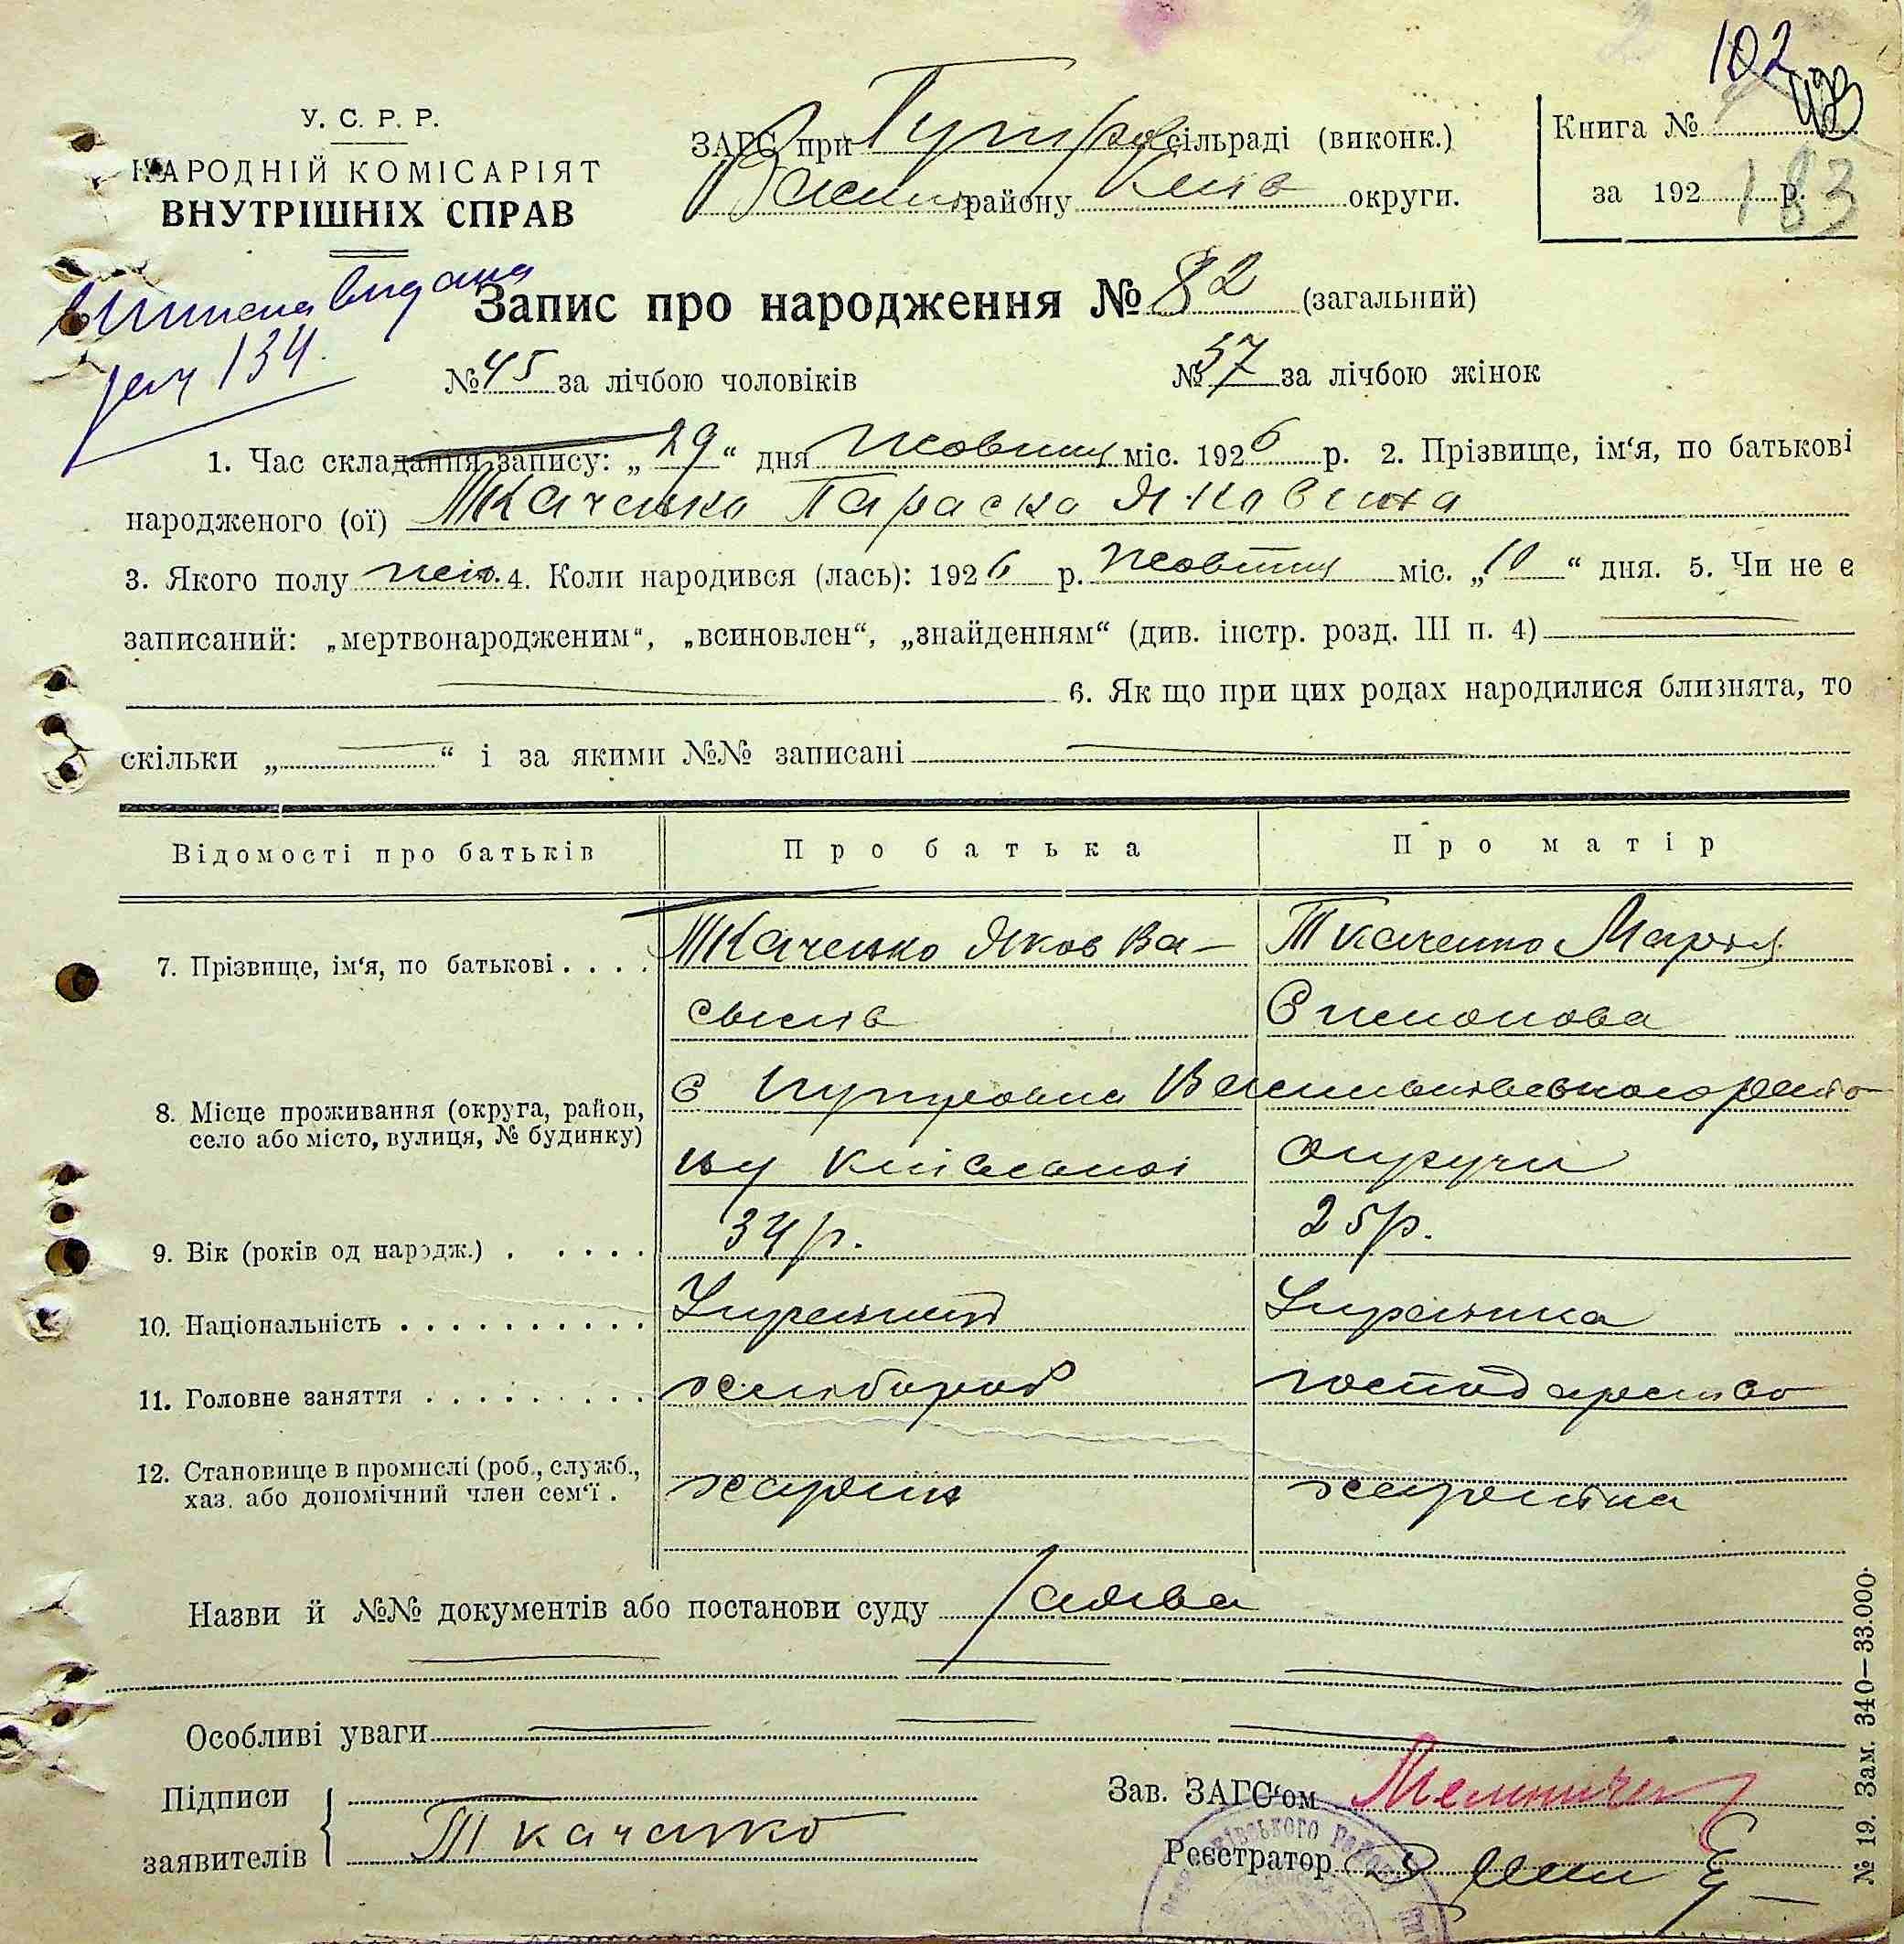 102
У. С. Р. Р.
НАРОДНІЙ КОМІСАРІЯТ
ВНУТРІШНІХ СПРАВ
ЗАГС при Гутро сільраді (виконк.)
Васильк району Київ округи.
Книга №
за 192 р.
183
виписка видана
134.
Запис про народження № 82 (загальний)
№ 45 за лічбою чоловіків № 37 за лічбою жінок
1. Час складання запису: „29“ дня жовтня міс. 1926 р. 2. Прізвище, ім‘я, по батькові
народженого (ої) Ткаченко Параска Яковина
3. Якого полу жін. 4. Коли народився (лась): 1926 р. жовтня міс. „10“ дня. 5. Чи не є
записаний: „мертвонародженим“, „всиновлен“, „знайденням“ (див. інстр. розд. III п. 4)
6. Як що при цих родах народилися близнята, то
скільки „ “ і за якими №№ записані
Відомості про батьків Про батька Про матір
7. Прізвище, ім‘я, по батькові . . . . Ткаченко Яков Ва- Ткаченко Марія
сылів Симонова
8. Місце проживання (округа, район, село або місто, вулиця, № будинку) с Гутровка Васильківського райо
ну Київської округи
9. Вік (років од народж.) . . . . . 34 р. 25 р.
10. Національність . . . . . . . . . . Українець Українка
11. Головне заняття . . . . . . . . . хлібороб господарство
12. Становище в промислі (роб., служб., хаз. або допомічний член сем‘ї . хазяїн хазяйка
Назви й №№ документів або постанови суду заява
Особливі уваги
Підписи
заявителів Ткаченко
Зав. ЗАГС‘ом
Реєстратор
№ 19. Зам. 340—33.000.